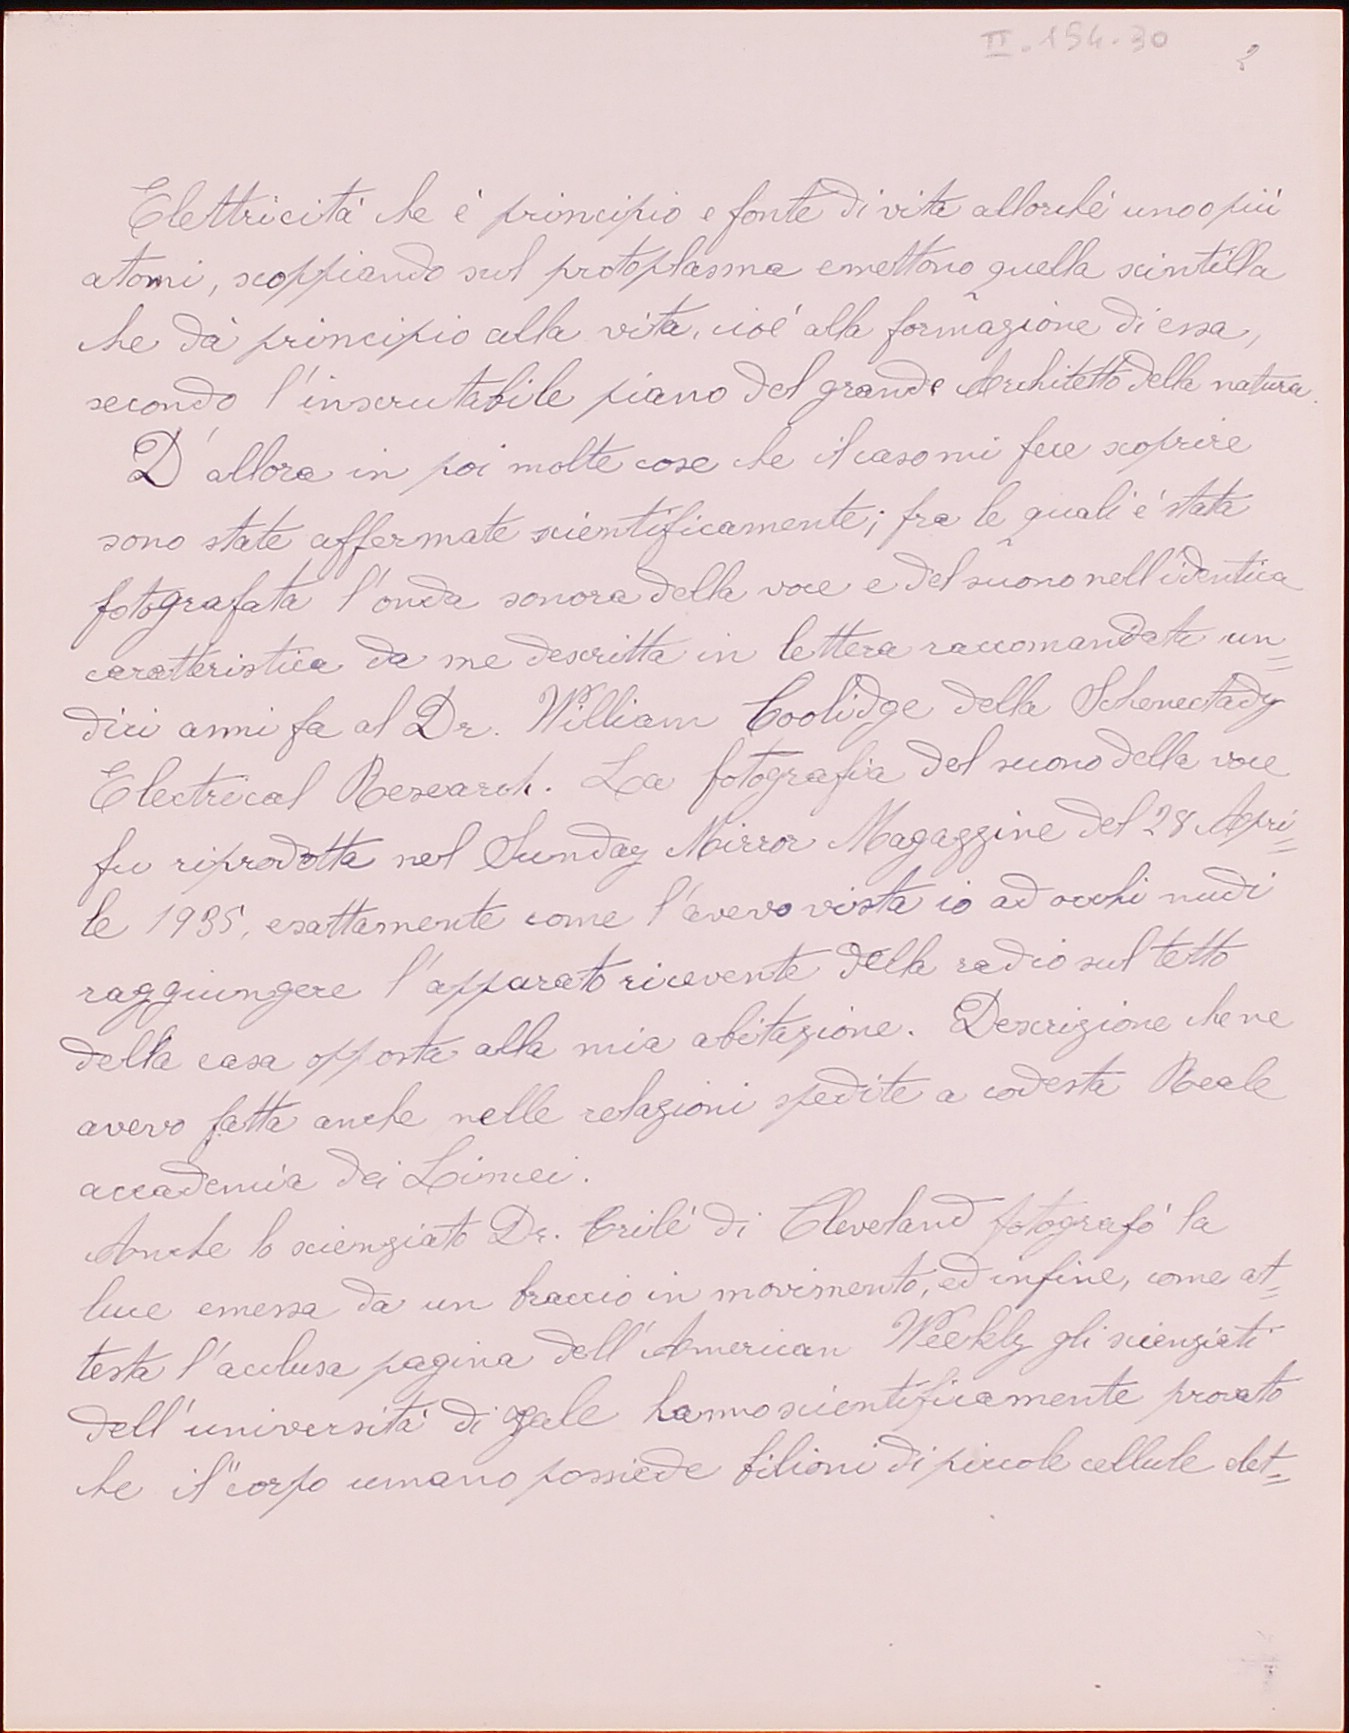 II.154.30
2
Elettricitá che é principio e fonte di vita allorché uno o piú
atomi, scoppiando sul protoplasma emettono quella scintilla
che dá principio alla vita, cioé alla formazione di essa,
secondo l'inscrutabile piano del grande Architetto della natura.
D'allora in poi molte cose che il caso mi fece scoprire
sono state affermate scientificamente; fra le quali é stata
fotografata l'onda sonora della voce e del suono nell'identica
caratteristica da me descritta in lettera raccomandata un=
dici anni fa al Dr. William Coolidge della Schenectady
Electrical Research. La fotografia del suono della voce
fu riprodotta nel Sunday Mirror Magazzine del 28 Apri=
le 1935, esattamente come l'avevo vista io ad occhi nudi
raggiungere l'apparato ricevente della radio sul tetto
della casa opposta alla mia abitazione. Descrizione che ne
avevo fatta anche nelle relazioni spedite a codesta Reale
accademia dei Lincei.
Anche lo scienziato Dr. Crilé di Cleveland fotografó la
luce emessa da un braccio in movimento, ed infine, come at=
testa l'acclusa pagina dell'American Weekly gli scienziati
dell'universitá di Yale hanno scientificamente provato
che il "corpo umano possiede bilioni di piccole cellule elet=